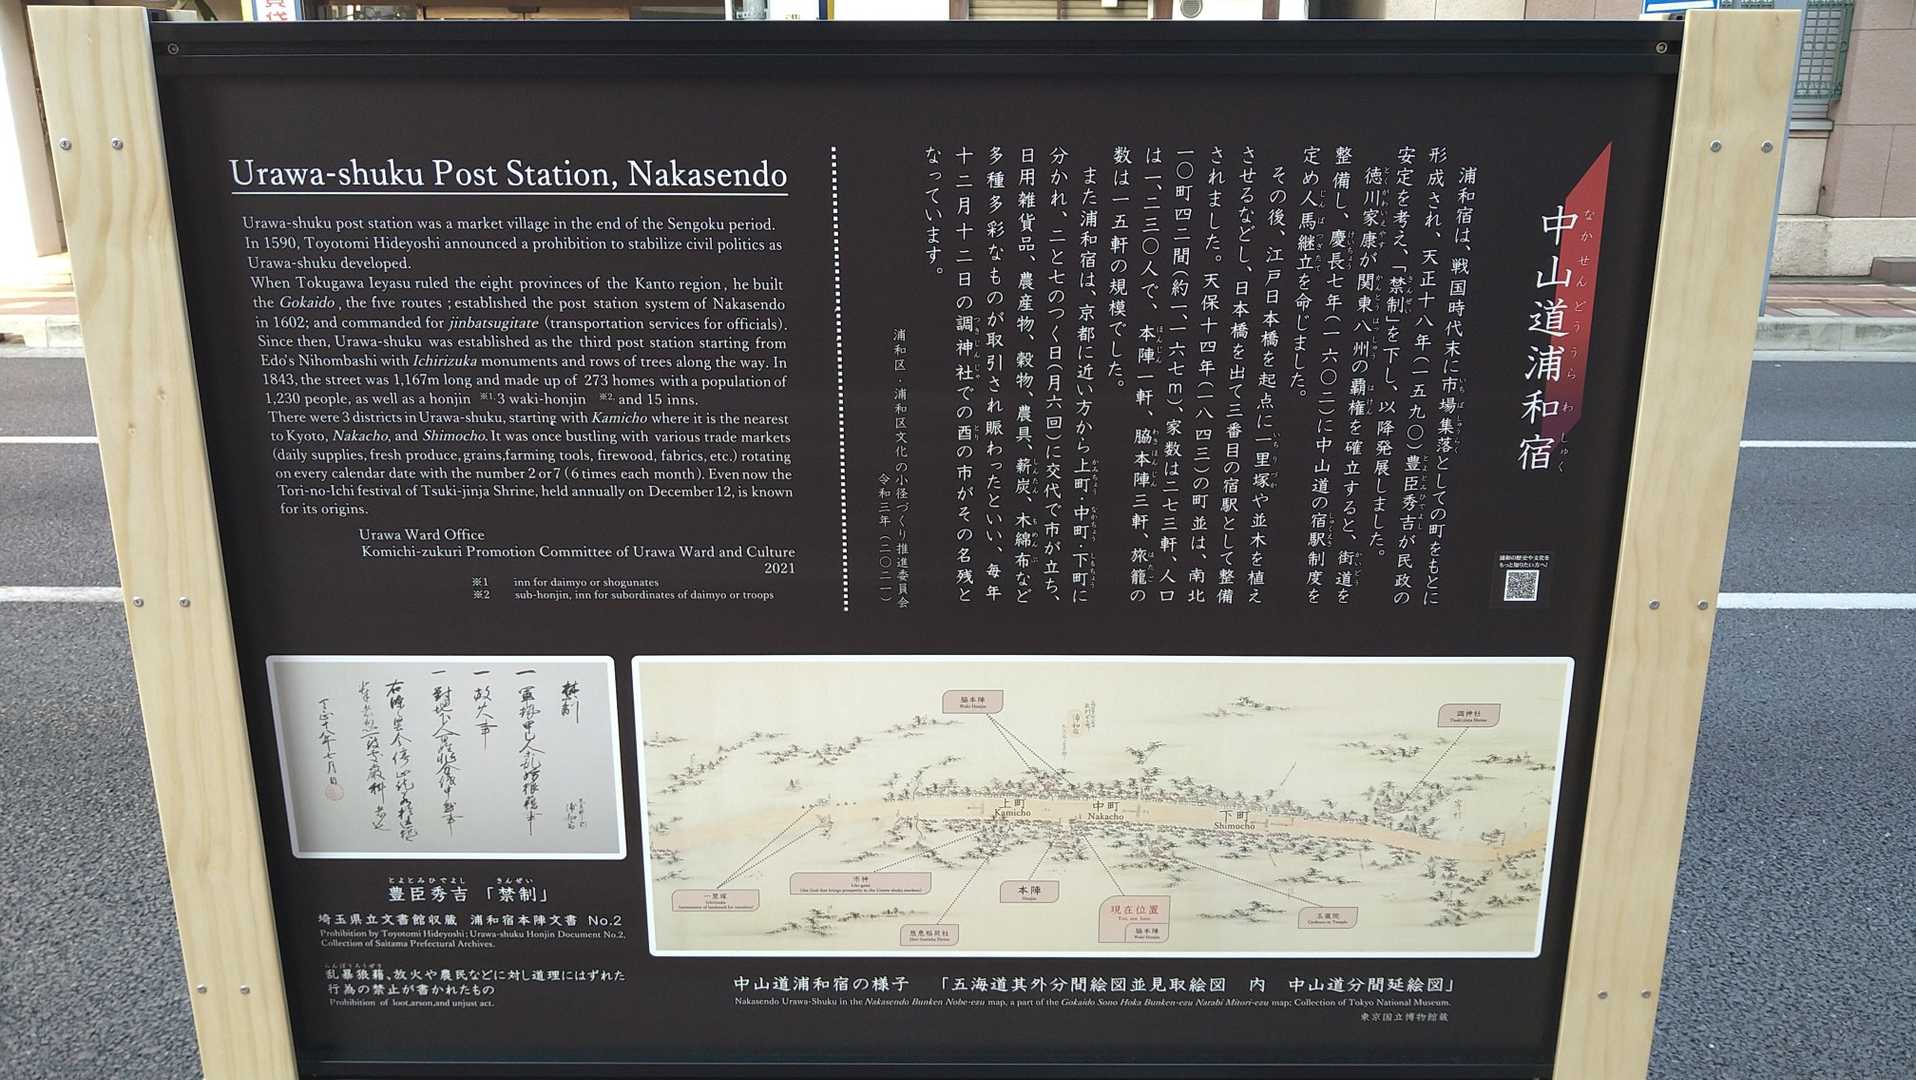 中山道浦和宿
なかせんどううらわしゅく
浦和宿は、戦国時代末に市場集落としての町をもとに
形成され、天正十八年(一五九〇)豊臣秀吉が民政の
安定を考え、「禁制」を下し、以降発展しました。
徳川家康が関東八州の覇権を確立すると、街道を
整備し、慶長七年(一六〇二)に中山道の宿駅制度を
定め人馬継立を命じました。
その後、江戸日本橋を起点に一里塚や並木を植え
させるなどし、日本橋を出て三番目の宿駅として整備
されました。天保十四年(一八四三)の町並は、南北
一〇町四二間(約一、一六七m)、家数は二七三軒、人口
は一、二三〇人で、本陣一軒、脇本陣三軒、旅籠の
数は一五軒の規模でした。
また浦和宿は、京都に近い方から上町・中町・下町に
分かれ、二と七のつく日(月六回)に交代で市が立ち、
日用雑貨品、農産物、穀物、農具、薪炭、木綿布など
多種多彩なものが取引され賑わったといい、毎年
十二月十二日の調神社での酉の市がその名残と
なっています。
浦和区・浦和区文化の小径づくり推進委員会
令和三年(二〇二一)
浦和の歴史や文化を
もっと知りたい方へ!
Urawa-shuku Post Station, Nakasendo
Urawa-shuku post station was a market village in the end of the Sengoku period.
In 1590, Toyotomi Hideyoshi announced a prohibition to stabilize civil politics as
Urawa-shuku developed.
When Tokugawa Ieyasu ruled the eight provinces of the Kanto region, he built
the Gokaido, the five routes; established the post station system of Nakasendo
in 1602; and commanded for jinbatsugitate (transportation services for officials).
Since then, Urawa-shuku was established as the third post station starting from
Edo's Nihombashi with Ichirizuka monuments and rows of trees along the way. In
1843, the street was 1,167m long and made up of 273 homes with a population of
1,230 people, as well as a honjin ※1, 3 waki-honjin ※2, and 15 inns.
There were 3 districts in Urawa-shuku, starting with Kamicho where it is the nearest
to Kyoto, Nakacho, and Shimocho. It was once bustling with various trade markets
(daily supplies, fresh produce, grains, farming tools, firewood, fabrics, etc.) rotating
on every calendar date with the number 2 or 7 (6 times each month). Even now the
Tori-no-Ichi festival of Tsuki-jinja Shrine, held annually on December 12, is known
for its origins.
Urawa Ward Office
Komichi-zukuri Promotion Committee of Urawa Ward and Culture
2021
※1 inn for daimyo or shogunates
※2 sub-honjin, inn for subordinates of daimyo or troops
とよとみひでよし きんぜい
豊臣秀吉 「禁制」
埼玉県立文書館収蔵 浦和宿本陣文書 No.2
Prohibition by Toyotomi Hideyoshi; Urawa-shuku Honjin Document No.2,
Collection of Saitama Prefectural Archives.
らんぼうろうぜき
乱暴狼藉、放火や農民などに対し道理にはずれた
行為の禁止が書かれたもの
Prohibition of loot,arson,and unjust act.
脇本陣
Waki Honjin
調神社
Tsuki-jinja Shrine
上町
Kamicho
中町
Nakacho
下町
Shimocho
一里塚
Ichirizuka
市神
本陣
Honjin
現在位置
You are here
脇本陣
Waki Honjin
玉蔵院
慈恵稲荷社
中山道浦和宿の様子 「五海道其外分間絵図並見取絵図 内 中山道分間延絵図」
Nakasendo Urawa-Shuku in the Nakasendo Bunken Nobe-ezu map, a part of the Gokaido Sono Hoka Bunken-ezu Narabi Mitori-ezu map; Collection of Tokyo National Museum.
東京国立博物館蔵